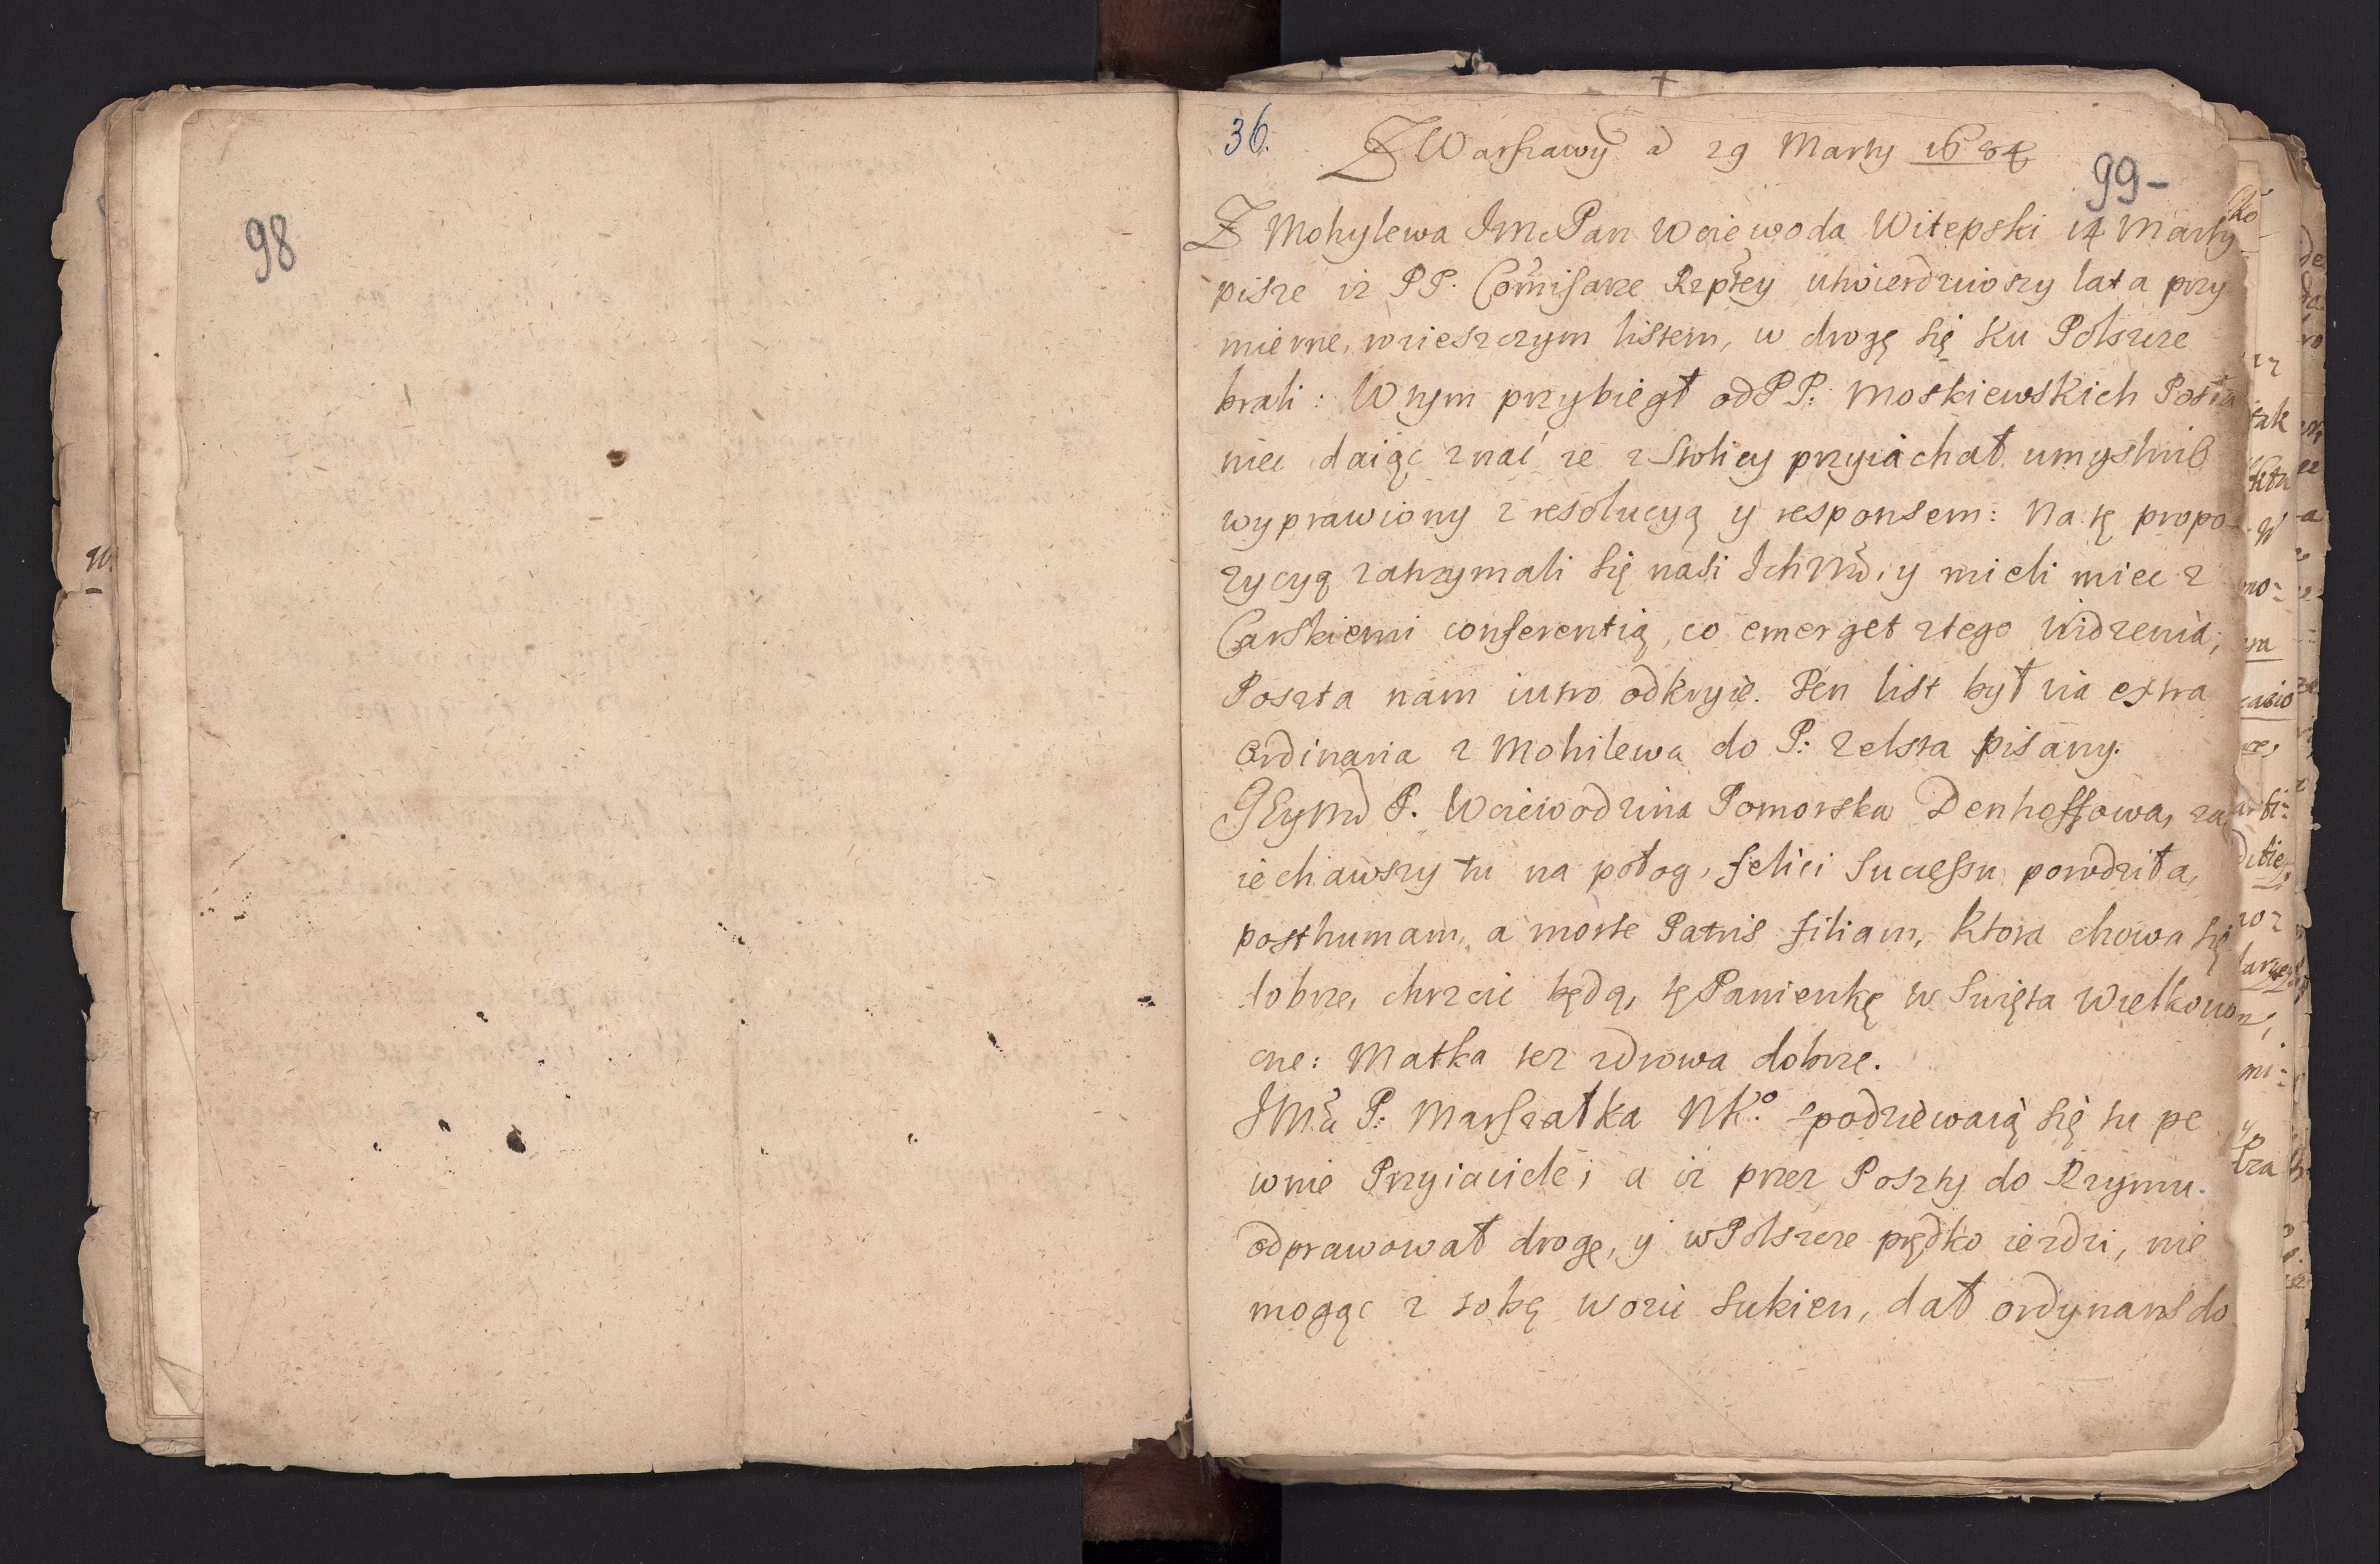 98
36.
Z Warszawy d 29 Marty 1684
99-
Z Mohylewa Jmc Pan Woiewoda Witepski 14 Marty
pisze iz PP. Comisarze Rzptey utwierdziwszy lata przy
mierne, wieszczym listem, w drogę się ku Polszcze
brali: W tym przybiegł od PP: Moskiewskich Posła
niec daiąc znać ze z Stolicy przyiachał umyślnie
wyprawiony z resolucyą y responsem: Na tę propo-
zycyą zatrzymali się nasi Ich Mć, y mieli miec z
Carskiemi conferentią, co emerget z tego widzenia,
Poszta nam iutro odkryie. Ten list był via extra
ordinaria z Mohilewa do P: Zelsta pisany.
JEyMć P. Woiewodzina Pomorska Denhoffowa, za
iechawszy tu na połog, felici Sucessu porodziła,
posthumam, a morte Patris filiam, Ktora chowa się
dobrze, chrzcić będą, tę Panienkę w Swięta Wielkono
cne: Matka tez zdrowa dobrze.
JMći P: Marszałka NKo. spodziewaią się tu pe
wnie Przyiaciele; a iz przez Poszty do Rzymu
odprawował drogę, y w Polszcze prędko iezdzi, nie
mogąc z sobą wozić Sukien, dał ordynans do